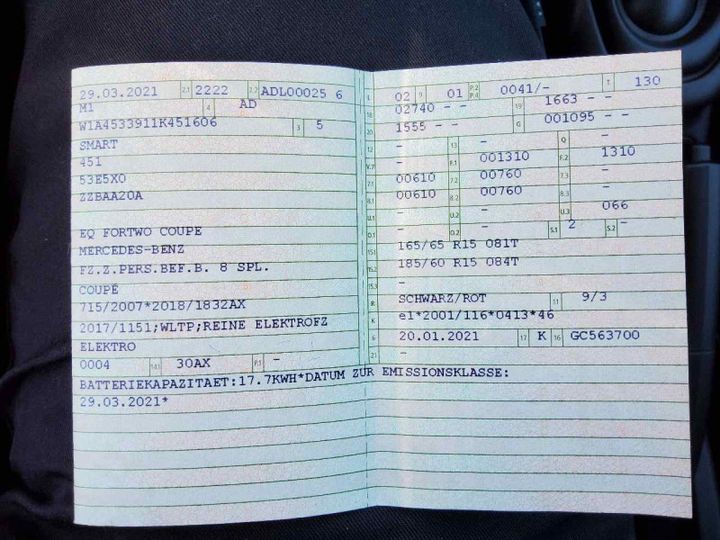 29.03.2021 2.1 2222 2.2 ADL00025 6
M1 4 AD
W1A4533911K451606 3 5
SMART
451
53E5X0
ZZBAA20A
EQ FORTWO COUPE
MERCEDES-BENZ
FZ.Z.PERS.BEF.B. 8 SPL.
COUPÉ
715/2007*2018/1832AX
2017/1151;WLTP;REINE ELEKTROFZ
ELEKTRO
0004 14.1 30AX P.1 -
BATTERIEKAPAZITAET:17.7KWH*DATUM ZUR EMISSIONSKLASSE:
29.03.2021*
L 02 9 01 P.2 P.4 0041/- T 130
18 02740 - - 19 1663 - -
20 1555 - - G 001095 - -
12 - 13 - Q -
V.7 - F.1 001310 F.2 1310
7.1 00610 7.2 00760 7.3 -
8.1 00610 8.2 00760 8.3 -
U.1 - U.2 - U.3 066
O.1 - O.2 - S.1 2 S.2 -
15.1 165/65 R15 081T
15.2 185/60 R15 084T
15.3 -
R SCHWARZ/ROT 11 9/3
K e1*2001/116*0413*46
6 20.01.2021 17 K 16 GC563700
21 -